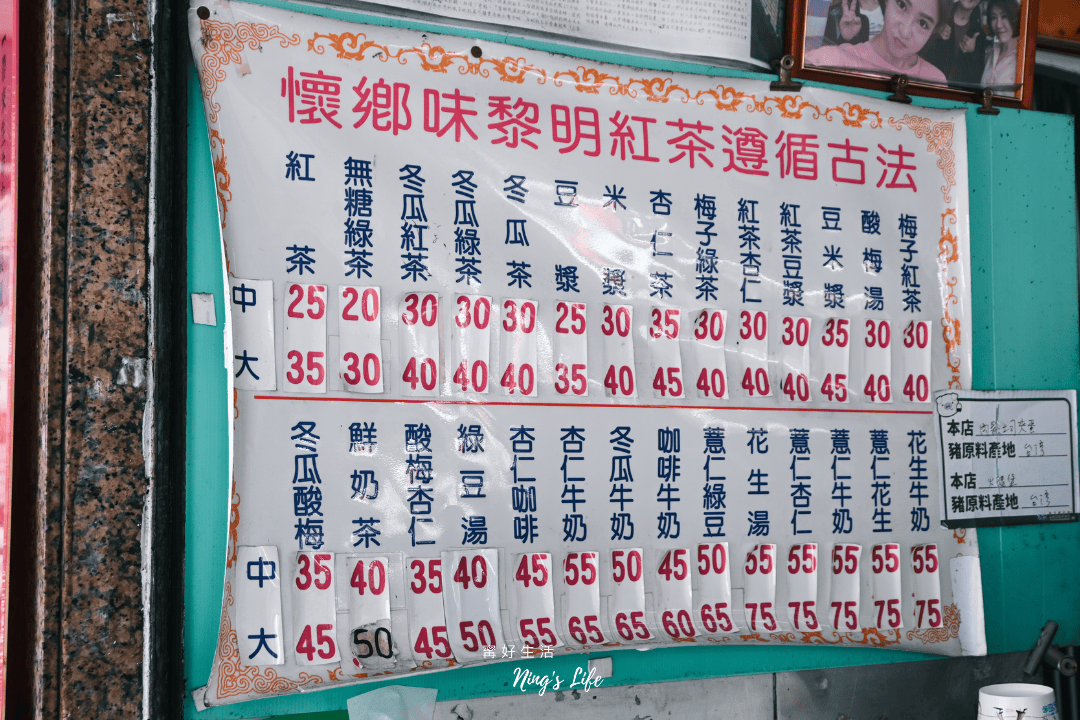 懷鄉味黎明紅茶遵循古法
紅茶 無糖綠茶 冬瓜紅茶 冬瓜綠茶 冬瓜茶 豆漿 米漿 杏仁茶 梅子綠茶 紅茶杏仁 紅茶豆漿 豆米漿 酸梅湯 梅子紅茶
中 25 20 30 30 30 25 30 35 30 30 30 35 30 30
大 35 30 40 40 40 35 40 45 40 40 40 45 40 40
冬瓜酸梅 鮮奶茶 酸梅杏仁 綠豆湯 杏仁咖啡 杏仁牛奶 冬瓜牛奶 咖啡牛奶 薏仁綠豆 花生湯 薏仁杏仁 薏仁牛奶 薏仁花生 花生牛奶
中 35 40 35 40 45 55 50 45 50 55 55 55 55 55
大 45 50 45 50 55 65 65 60 65 75 75 75 75 75
本店
豬原料產地 台灣
本店
豬原料產地 台灣
甯好生活
Ning's Life